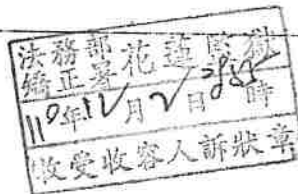 法務部
矯正署花蓮監獄
110年12月2日 時
收受收容人訴狀章